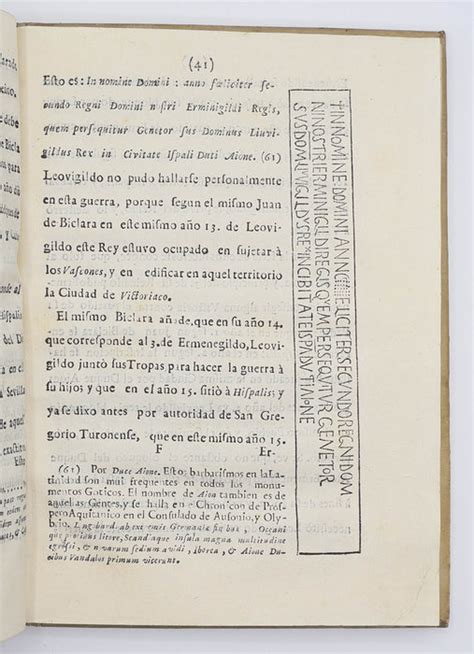 (41)
Esto es: In nomine Domini: anno fœliciter se-
cundo Regni Domini nostri Erminigildi Regis,
quem persequitur Genetor sus Dominus Liuvi-
gildus Rex in Civitate Ispali Duti Aione. (61)
Leovigildo no pudo hallarse personalmente
en esta guerra, porque segun el mismo Juan
de Biclara en este mismo año 13. de Leovi-
gildo este Rey estuvo ocupado en sujetar à
los Vascones, y en edificar en aquel territorio
la Ciudad de Victoriaco.
El mismo Biclara añade, que en su año 14.
que corresponde al 3. de Ermenegildo, Leovi-
gildo juntò sus Tropas para hacer la guerra à
su hijo; y que en el año 15. sitiò à Hispalis; y
ya se dixo antes por autoridad de San Gre-
gorio Turonense, que en este mismo año 15.
F Er-
(61) Por Duce Aione. Estos barbarismos en la La-
tinidad son mui frequentes en todos los monu-
mentos Goticos. El nombre de Aion tambien es de
aquellas Gentes, y se halla en el Chronicon de Pros-
pero Aquitanico en el Consulado de Ausonio, y Oly-
brio.
que proximus litore, Scandia que insula magna multitudine
egressi, & n varum sedium avidi, Iborea, & Aione Du-
cibus Vandalos primum vicerunt.
†INNOMINEDOMINIANNOFELICITERSECVNDOREGNIDOM
NINOSTRIERMINIGILDIREGISQVEMPERSEQVITVRGENETOR
SVSDOMLIVVIGILDVSREXINCIBITATEISPADVTIAIONE